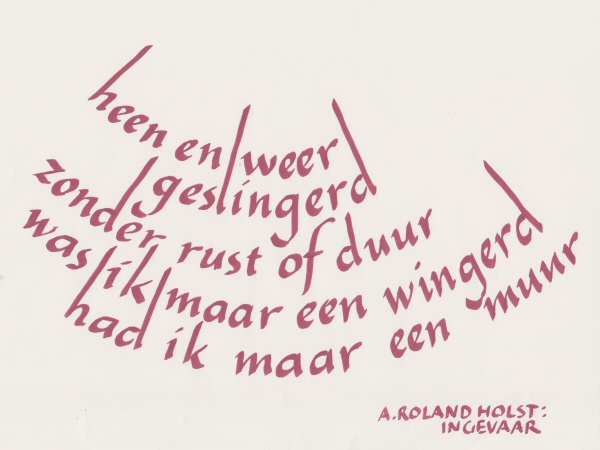 heen en weer
geslingerd
zonder rust of duur
was ik maar een wingerd
had ik maar een muur
A.ROLAND HOLST:
INGEVAAR